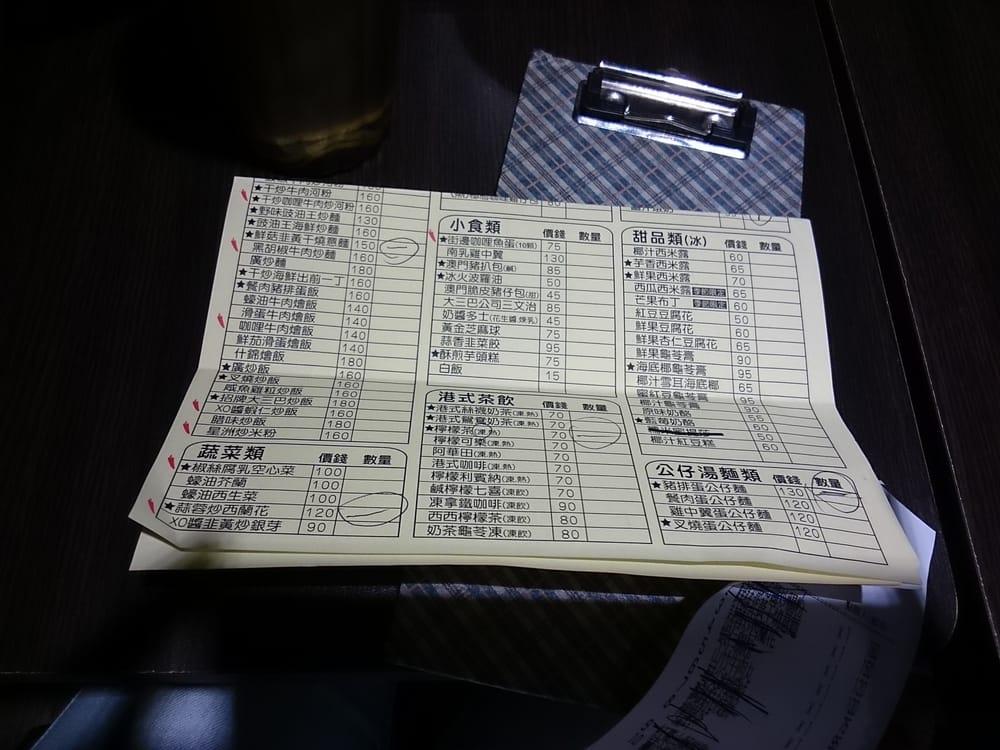 ★干炒牛肉河粉 160
★干炒咖哩牛肉炒河粉 160
★野味豉油王炒麵 130
★豉油王海鮮炒麵 160
★鮮菇韭黃干燒意麵 150
黑胡椒牛肉炒麵 160
廣炒麵 180
★干炒海鮮出前一丁 160
★餐肉豬排蛋飯 160
蠔油牛肉燴飯 140
滑蛋牛肉燴飯 140
咖哩牛肉燴飯 140
鮮茄滑蛋燴飯 140
什錦燴飯 180
★廣炒飯 160
★叉燒炒飯 160
咸魚雞粒炒飯 160
★招牌大三巴炒飯 180
XO醬蝦仁炒飯 160
臘味炒飯 180
星洲炒米粉 160
蔬菜類 價錢 數量
★椒絲腐乳空心菜 100
蠔油芥蘭 100
蠔油西生菜 100
★蒜蓉炒西蘭花 120
XO醬韭黃炒銀芽 90
小食類 價錢 數量
★街邊咖哩魚蛋(10顆) 75
南乳雞中翼 130
★澳門豬扒包(鹹) 85
★冰火波羅油 50
澳門脆皮豬仔包(甜) 45
大三巴公司三文治 85
奶醬多士(花生醬.煉乳) 45
黃金芝麻球 75
蒜香韭菜餃 95
★酥煎芋頭糕 75
白飯 15
港式茶飲 價錢 數量
★港式絲襪奶茶(凍.熱) 70
★港式鴛鴦奶茶(凍.熱) 70
★檸檬茶(凍.熱) 70
檸檬可樂(凍.熱) 70
阿華田(凍.熱) 70
港式咖啡(凍.熱) 70
檸檬利賓納(凍.熱) 70
鹹檸檬七喜(凍飲) 70
凍拿鐵咖啡(凍飲) 90
西西檸檬茶(凍飲) 80
奶茶龜苓凍(凍飲) 80
甜品類(冰) 價錢 數量
椰汁西米露 60
★芋香西米露 65
★鮮果西米露 70
西瓜西米露 季節限定 65
芒果布丁 季節限定 60
紅豆豆腐花 50
鮮果豆腐花 60
鮮果杏仁豆腐花 65
鮮果龜苓膏 90
★海底椰龜苓膏 95
椰汁雪耳海底椰 65
蜜紅豆龜苓膏 95
椰汁龜苓膏 90
原味奶酪 55
★藍莓奶酪 60
椰汁紅豆糕 50
公仔湯麵類 價錢 數量
★豬排蛋公仔麵 130
餐肉蛋公仔麵 120
雞中翼蛋公仔麵 120
★叉燒蛋公仔麵 120